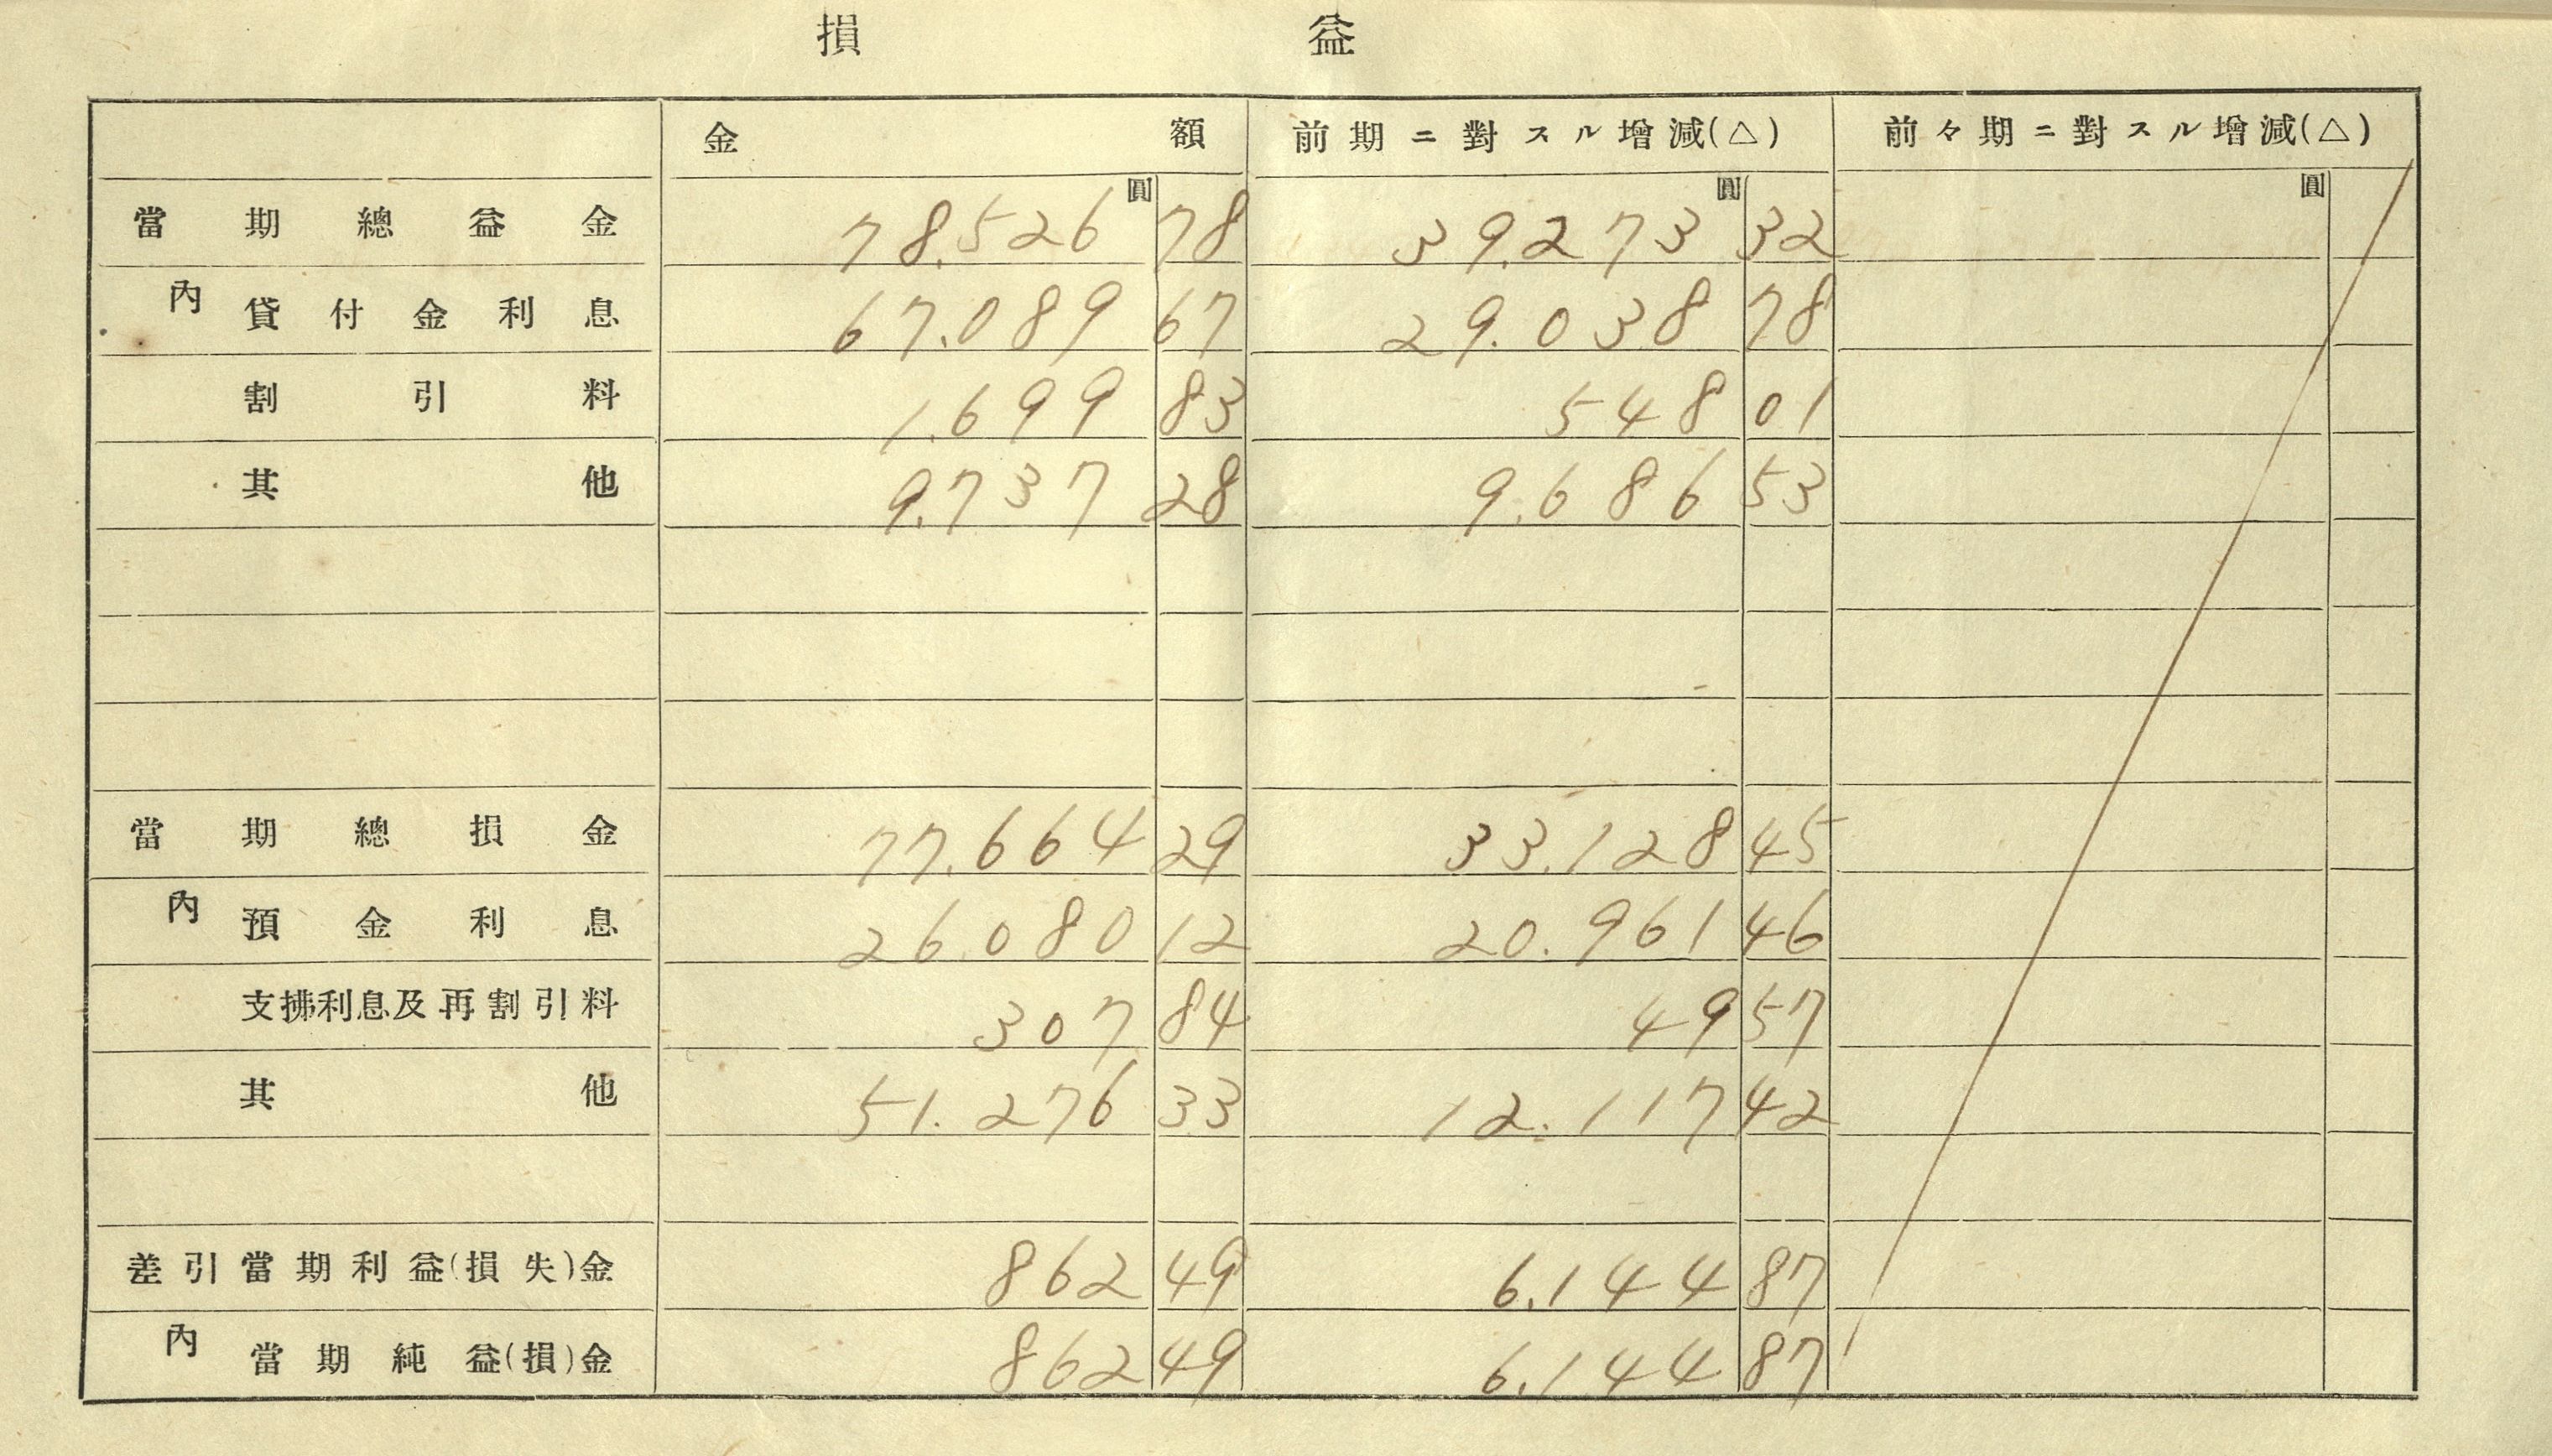 損益
金額 前期ニ對スル增減(△) 前々期ニ對スル增減(△)
圓 圓 圓
當期總益金 78.526 78 39.273 32
內 貸付金利息 67.089 67 29.038 78
割引料 1.699 83 548 01
其他 9.737 28 9.686 53
當期總損金 77.664 29 33.128 45
內 預金利息 26.080 12 20.961 46
支拂利息及再割引料 307 84 49 57
其他 51.276 33 12.117 42
差引當期利益(損失)金 862 49 6.144 87
內 當期純益(損)金 862 49 6.144 87